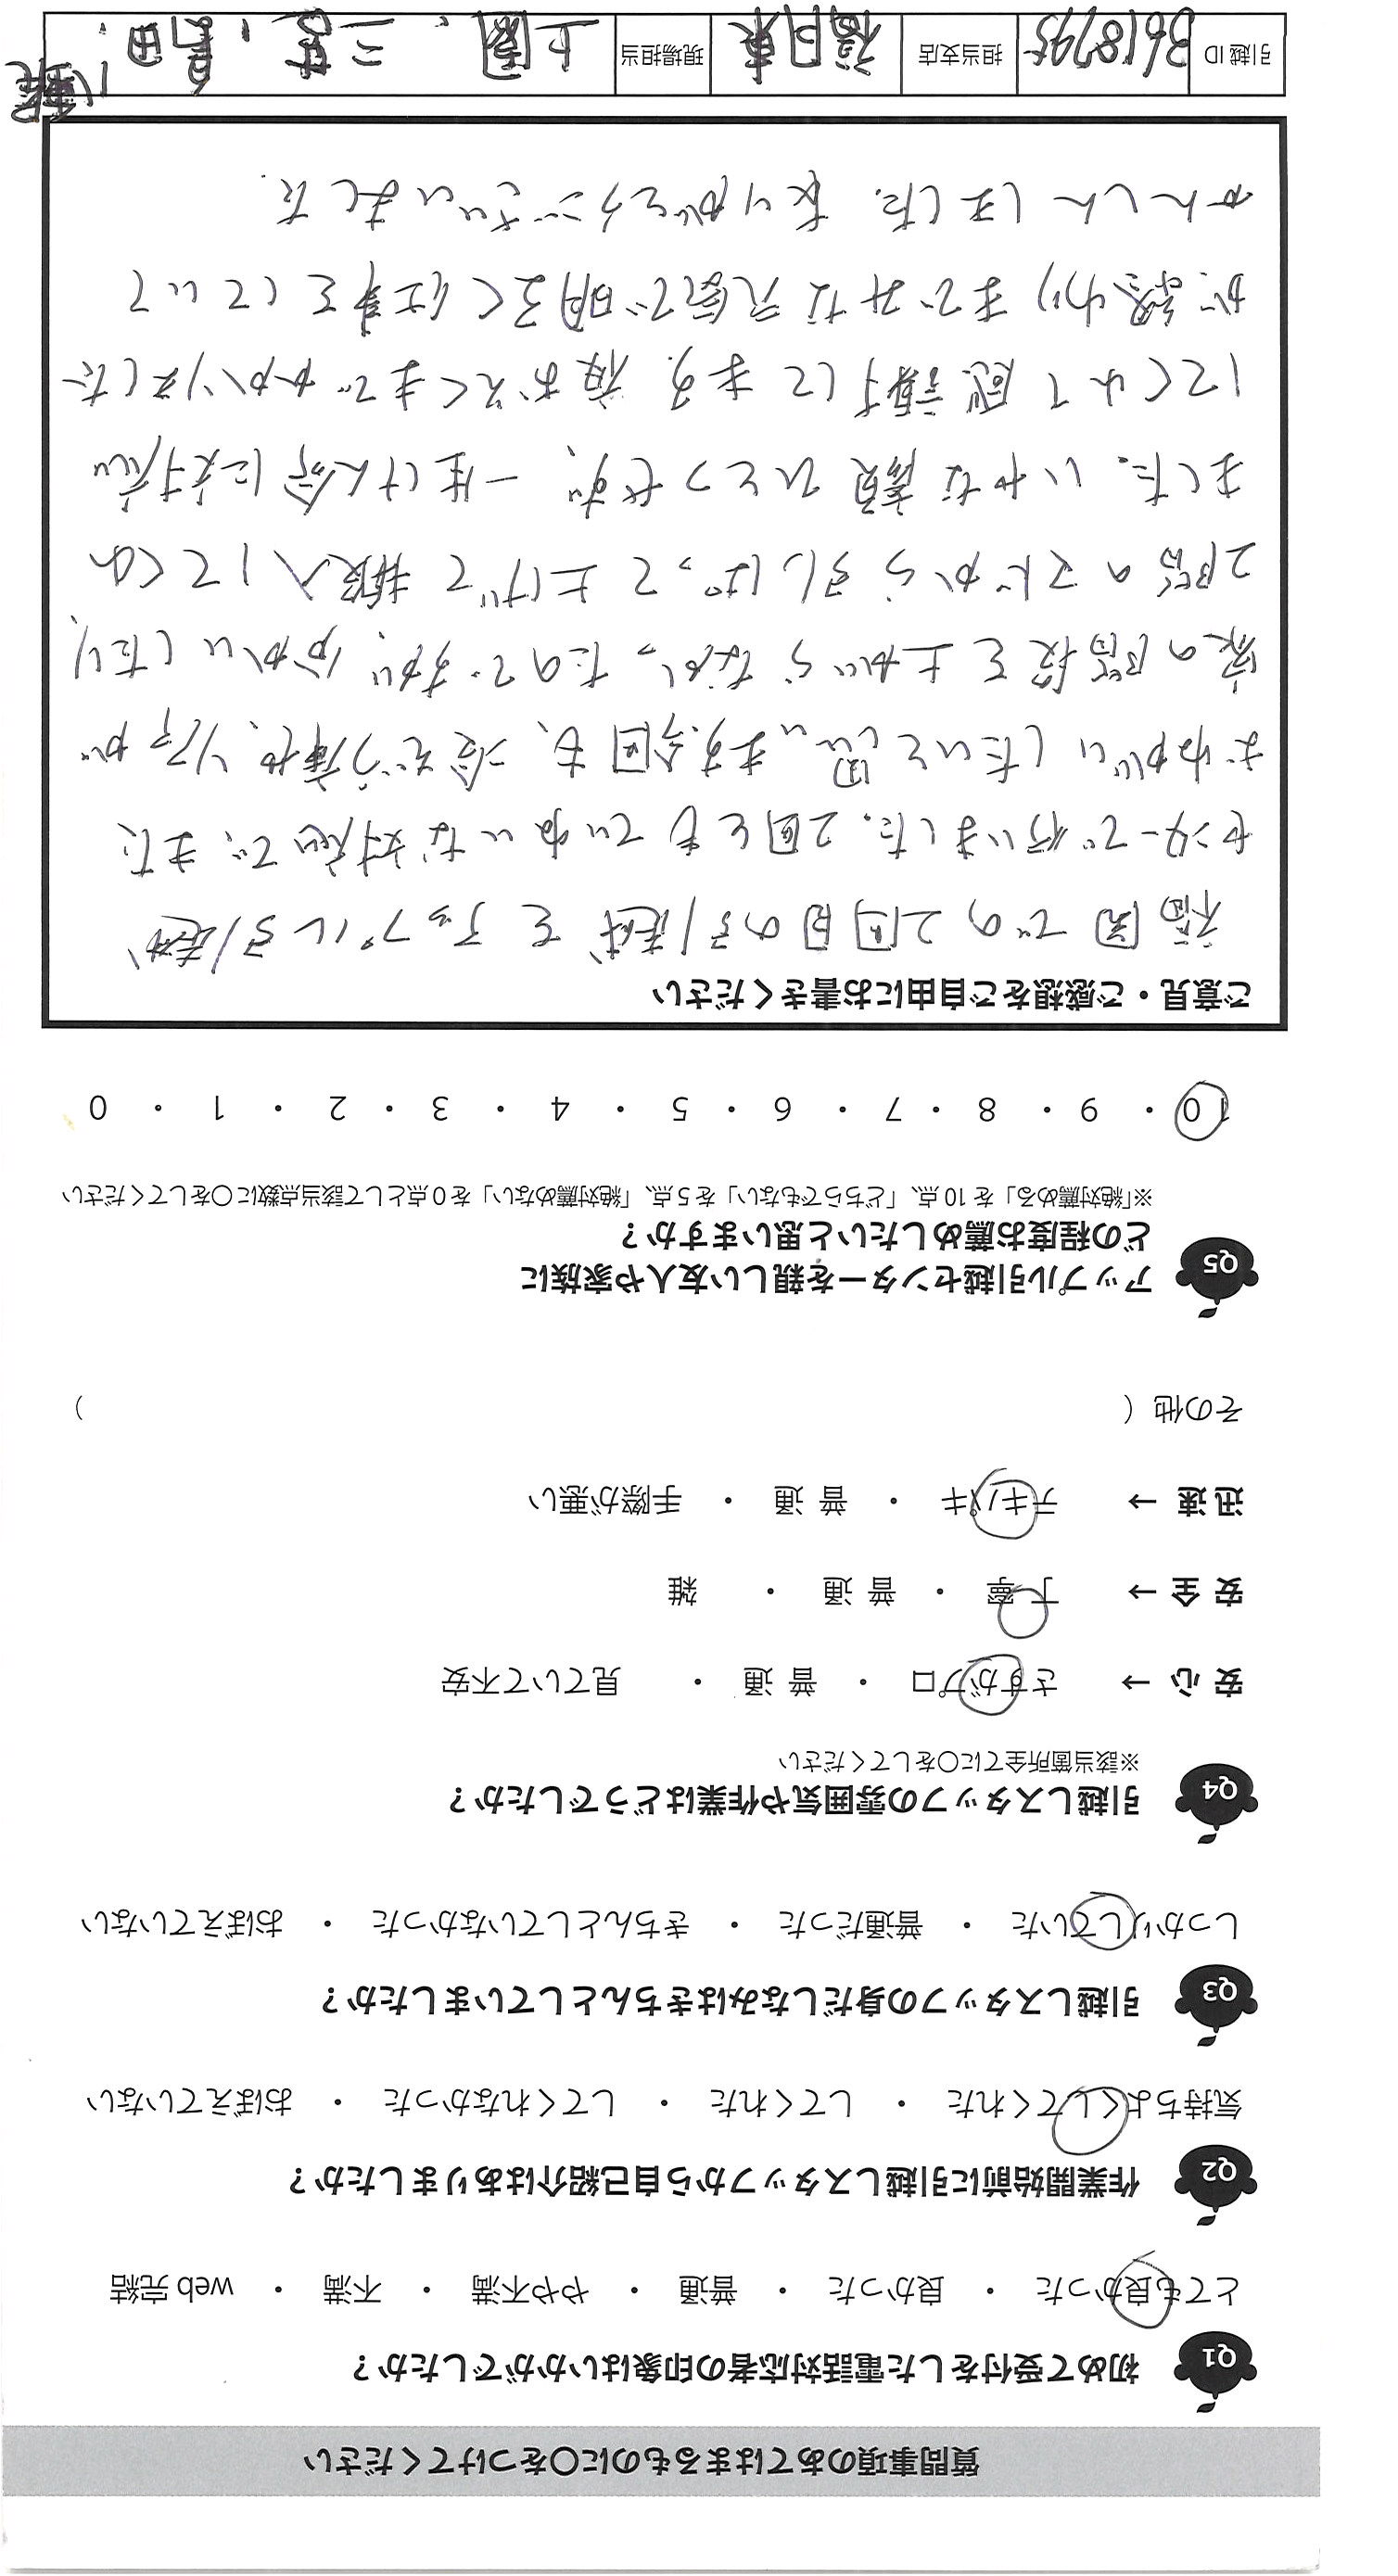 質問事項のあてはまるものに○をつけてください
Q1 初めて受付をした電話対応者の印象はいかがでしたか？
とても良かった ・ 良かった ・ 普通 ・ やや不満 ・ 不満 ・ web 完結
Q2 作業開始前に引越しスタッフから自己紹介はありましたか？
気持ちよくしてくれた ・ してくれた ・ してくれなかった ・ おぼえていない
Q3 引越しスタッフの身だしなみはきちんとしていましたか？
しっかりしていた ・ 普通だった ・ きちんとしていなかった ・ おぼえていない
Q4 引越しスタッフの雰囲気や作業はどうでしたか？
※該当箇所全てに○をしてください
安心 → さすがプロ ・ 普通 ・ 見ていて不安
安全 → 丁寧 ・ 普通 ・ 雑
迅速 → テキパキ ・ 普通 ・ 手際が悪い
その他（ ）
Q5 アップル引越センターを親しい友人や家族に
どの程度お薦めしたいと思いますか？
※「絶対薦める」を 10 点、「どちらでもない」を 5 点、「絶対薦めない」を 0 点として該当点数に○をしてください
10 ・ 9 ・ 8 ・ 7 ・ 6 ・ 5 ・ 4 ・ 3 ・ 2 ・ 1 ・ 0
ご意見・ご感想をご自由にお書きください
福岡での2回目の引越をアップル引越
センターで行いました。2回ともていねいな対応で、また
おねがいしたいと思います。今回も、冷ぞう庫や、ソファが
家の階段を上がらなかったのですが、分かいしたり、
2階のマドから引しぱって上げて搬入してくれ
ました。いやな顔ひとつせず、一生けん命に対応
してくれて感謝してます。夜おそくまでかかりました
が、終わりまでみな元気で明るく仕事をしていて
かんしんしました。ありがとうございました。
引越 ID 3618795 担当支店 福岡東 現場担当 上園、三苫、島田、